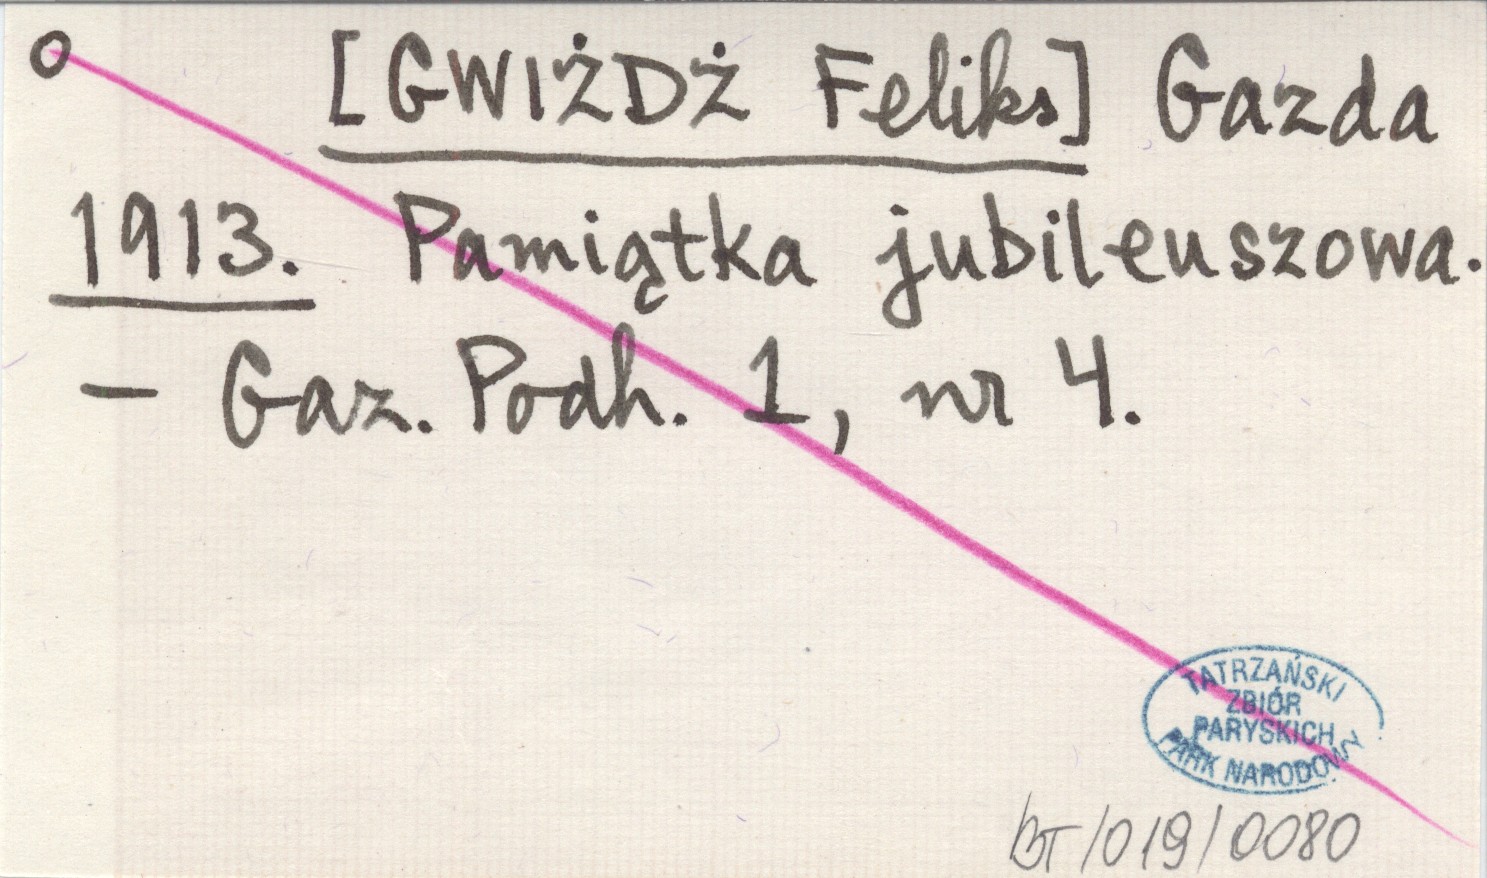 [GWIŻDŻ Feliks] Gazda
1913. Pamiątka jubileuszowa.
– Gaz. Podh. 1, nr 4.
TATRZAŃSKI
ZBIÓR
PARYSKICH
PARK NARODOWY
BT/019/0080